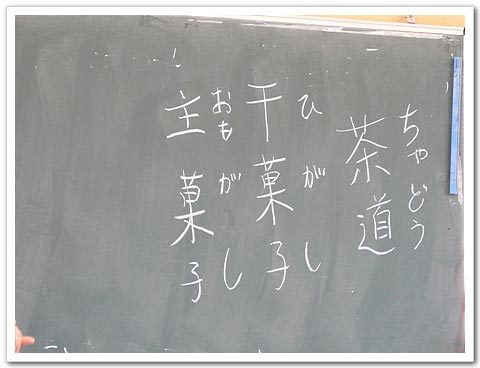 ちゃどう
茶道
ひがし
干菓子
おもがし
主菓子